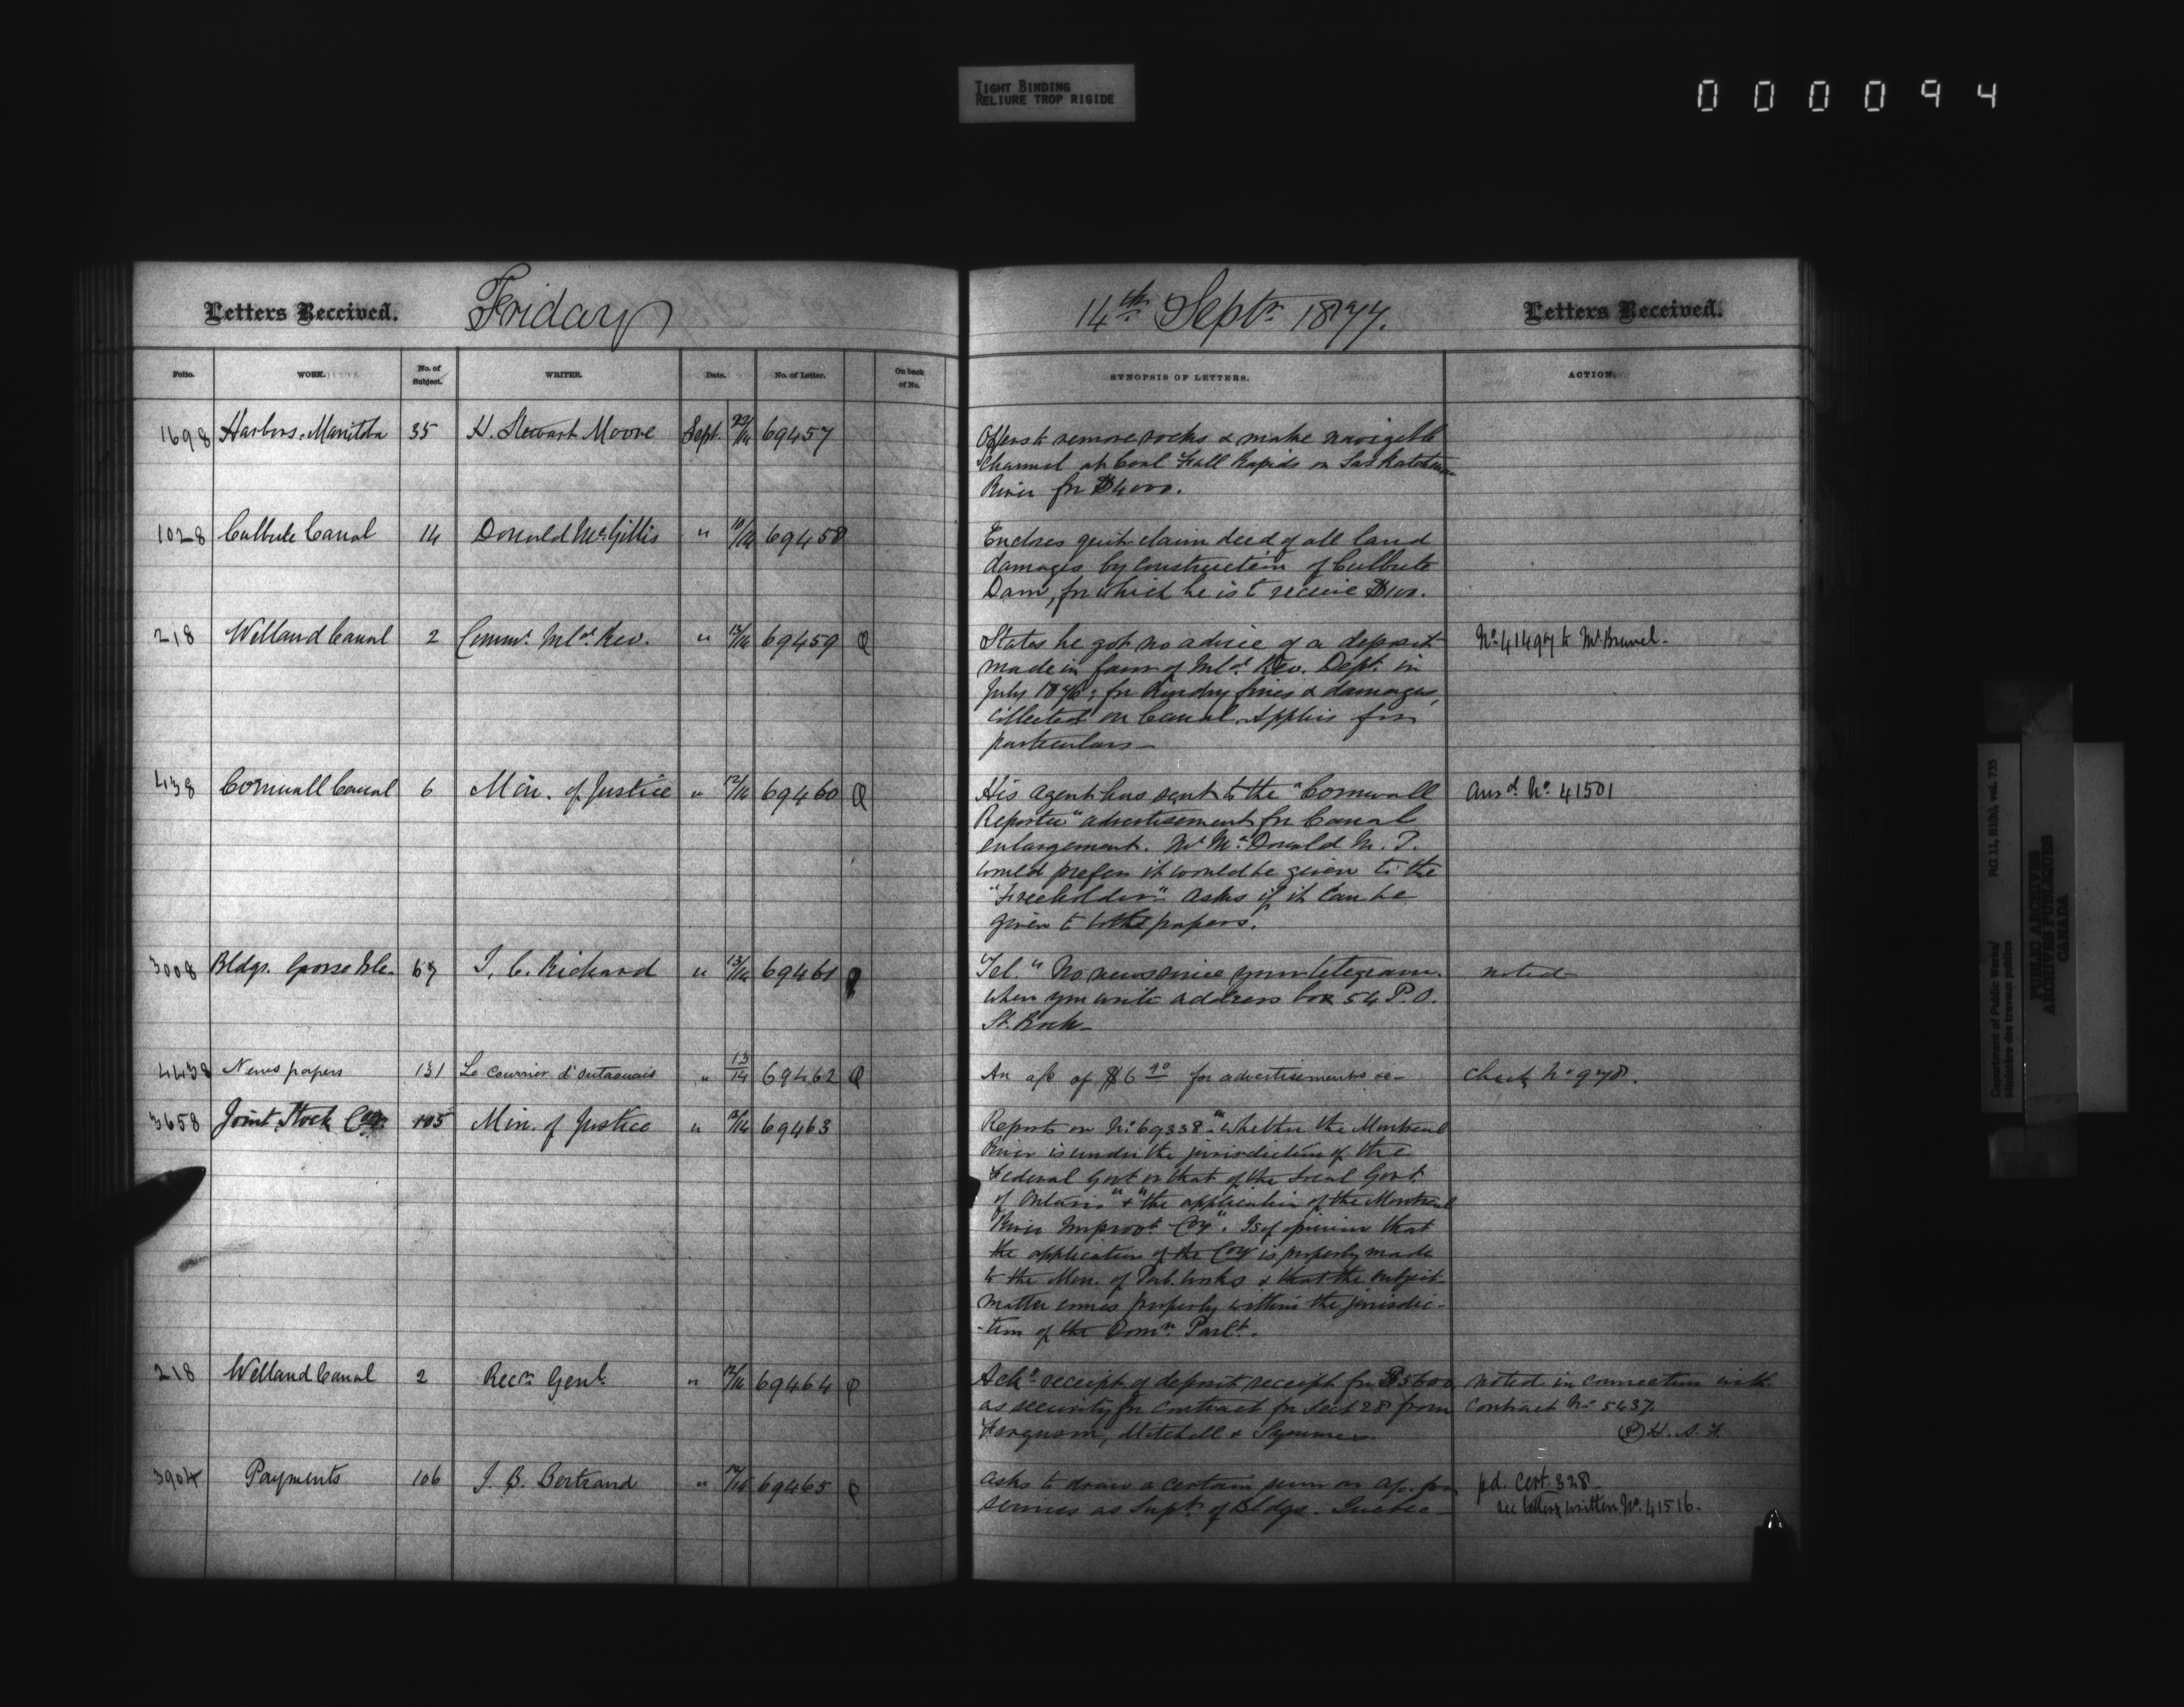 TIGHT BINDING
RELIURE TROP RIGIDE
000094
Letters Received. Friday 14th Septr 1877. Letters Received.
Folio. WORK. No. of Subject. WRITER. Date. No. of Letter. On back of No. SYNOPSIS OF LETTERS. ACTION.
1698 Harbors. Manitoba 35 H. Stewart Moore Sept. 22/14 69457 Offers to remove rocks & make navigable
Channel at Coal Fall Rapids on Saskatchewan
River for $4000.
1028 Culbute Canal 14 Donald McGillis " 10/14 69458 Encloses quit claim deed of all land
damages by construction of Culbute
Dam, for which he is to receive $100.
218 Welland Canal 2 Commr. Inld. Rev. " 13/14 69459 States he got no advice of a deposit No. 41497 to Mr. Brunel.
made in favor of Inld. Rev. Dept. in
July 1876; for sundry fines & damages,
collected on Canal. Applies for
particulars
438 Cornwall Canal 6 Min. of Justice " 12/14 69460 His agent has sent to the "Cornwall ansd. No. 41501
Reporter" advertisement for Canal
enlargement. Mr. McDonald M.P.
would prefer it would be given to the
"Freeholder" asks if it can be
given to both papers.
3008 Bldgs. Grosse Isle. 67 J. C. Richard " 13/14 69461 Tel. "No news since your telegram. noted
When you write address box 54 P.O.
St. Roch
4438 News papers 131 Le Courrier d'Outaouais " 13/14 69462 An a/c of $6 20 for advertisements Check No 978.
3658 Joint Stock Coy. 105 Min. of Justice " 12/14 69463 Reports on No. 69338 "whether the Montreal
River is under the jurisdiction of the
Federal Govt or that of the Local Govt.
of Ontario" & "the application of the Montreal
River Improvt. Coy". Is of opinion that
the application of the Coy is properly made
to the Min. of Pub. Works & that the subject
matter comes properly within the jurisdic-
-tion of the Domn. Parlt.
218 Welland Canal 2 Recr. Genl. " 12/14 69464 Ack. receipt of deposit receipt for $5600 noted in connection with
as security for Contract for Sect 28 from contract No 5437.
Ferguson, Mitchell & Symmes H. A. F.
3904 Payments 106 J. B. Bertrand " 12/15 69465 Asks to draw a certain sum on a/c. for pd. Cert. 328
services as Supt. of Bldgs. Quebec see letter written No. 41516.
Department of Public Works/ RG 11, B1(b), vol. 735
Ministère des travaux publics
PUBLIC ARCHIVES
ARCHIVES PUBLIQUES
CANADA